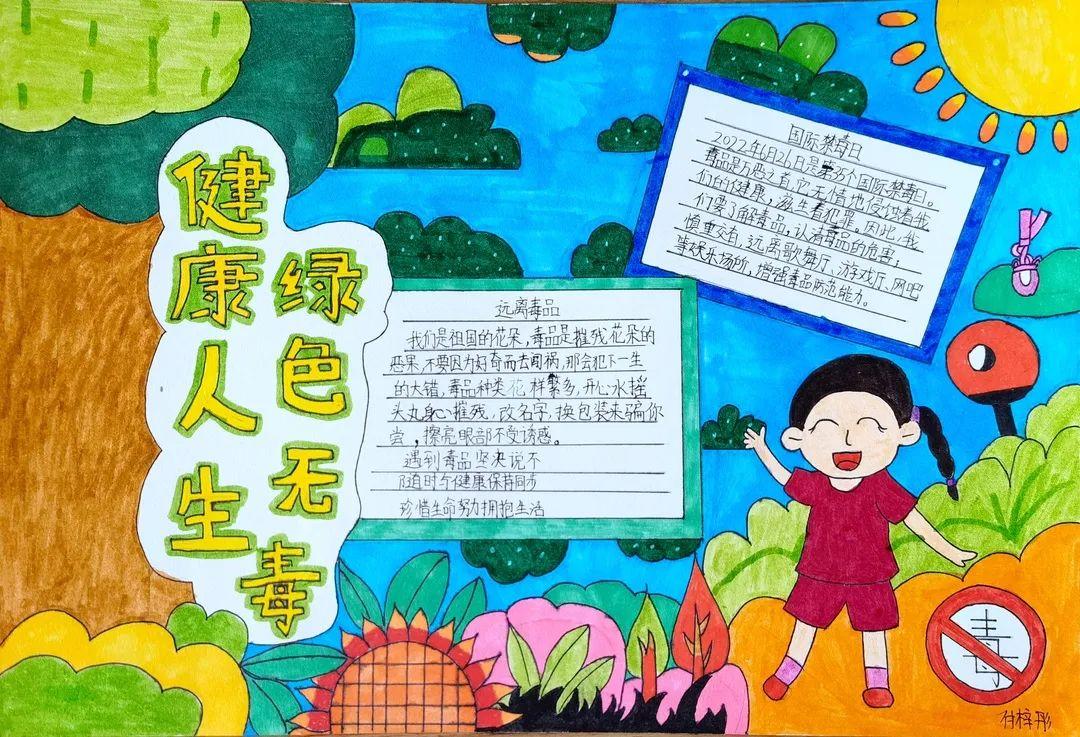 健康人生
绿色无毒
国际禁毒日
2022年6月26日是第35个国际禁毒日。
毒品是万恶之首,它无情地侵蚀着我
们的健康,滋生着犯罪。因此,我
们要了解毒品,认清毒品的危害;
慎重交友,远离歌舞厅、游戏厅、网吧
等娱乐场所,增强毒品防范能力。
远离毒品
我们是祖国的花朵,毒品是摧残花朵的
恶果,不要因为好奇而去闯祸,那会犯下一生
的大错,毒品种类花样繁多,开心水摇
头丸身心摧残,改名字,换包装来骗你
尝,擦亮眼部不受诱惑。
遇到毒品坚决说不
随时与健康保持同步
珍惜生命努力拥抱生活
毒
付梓彤